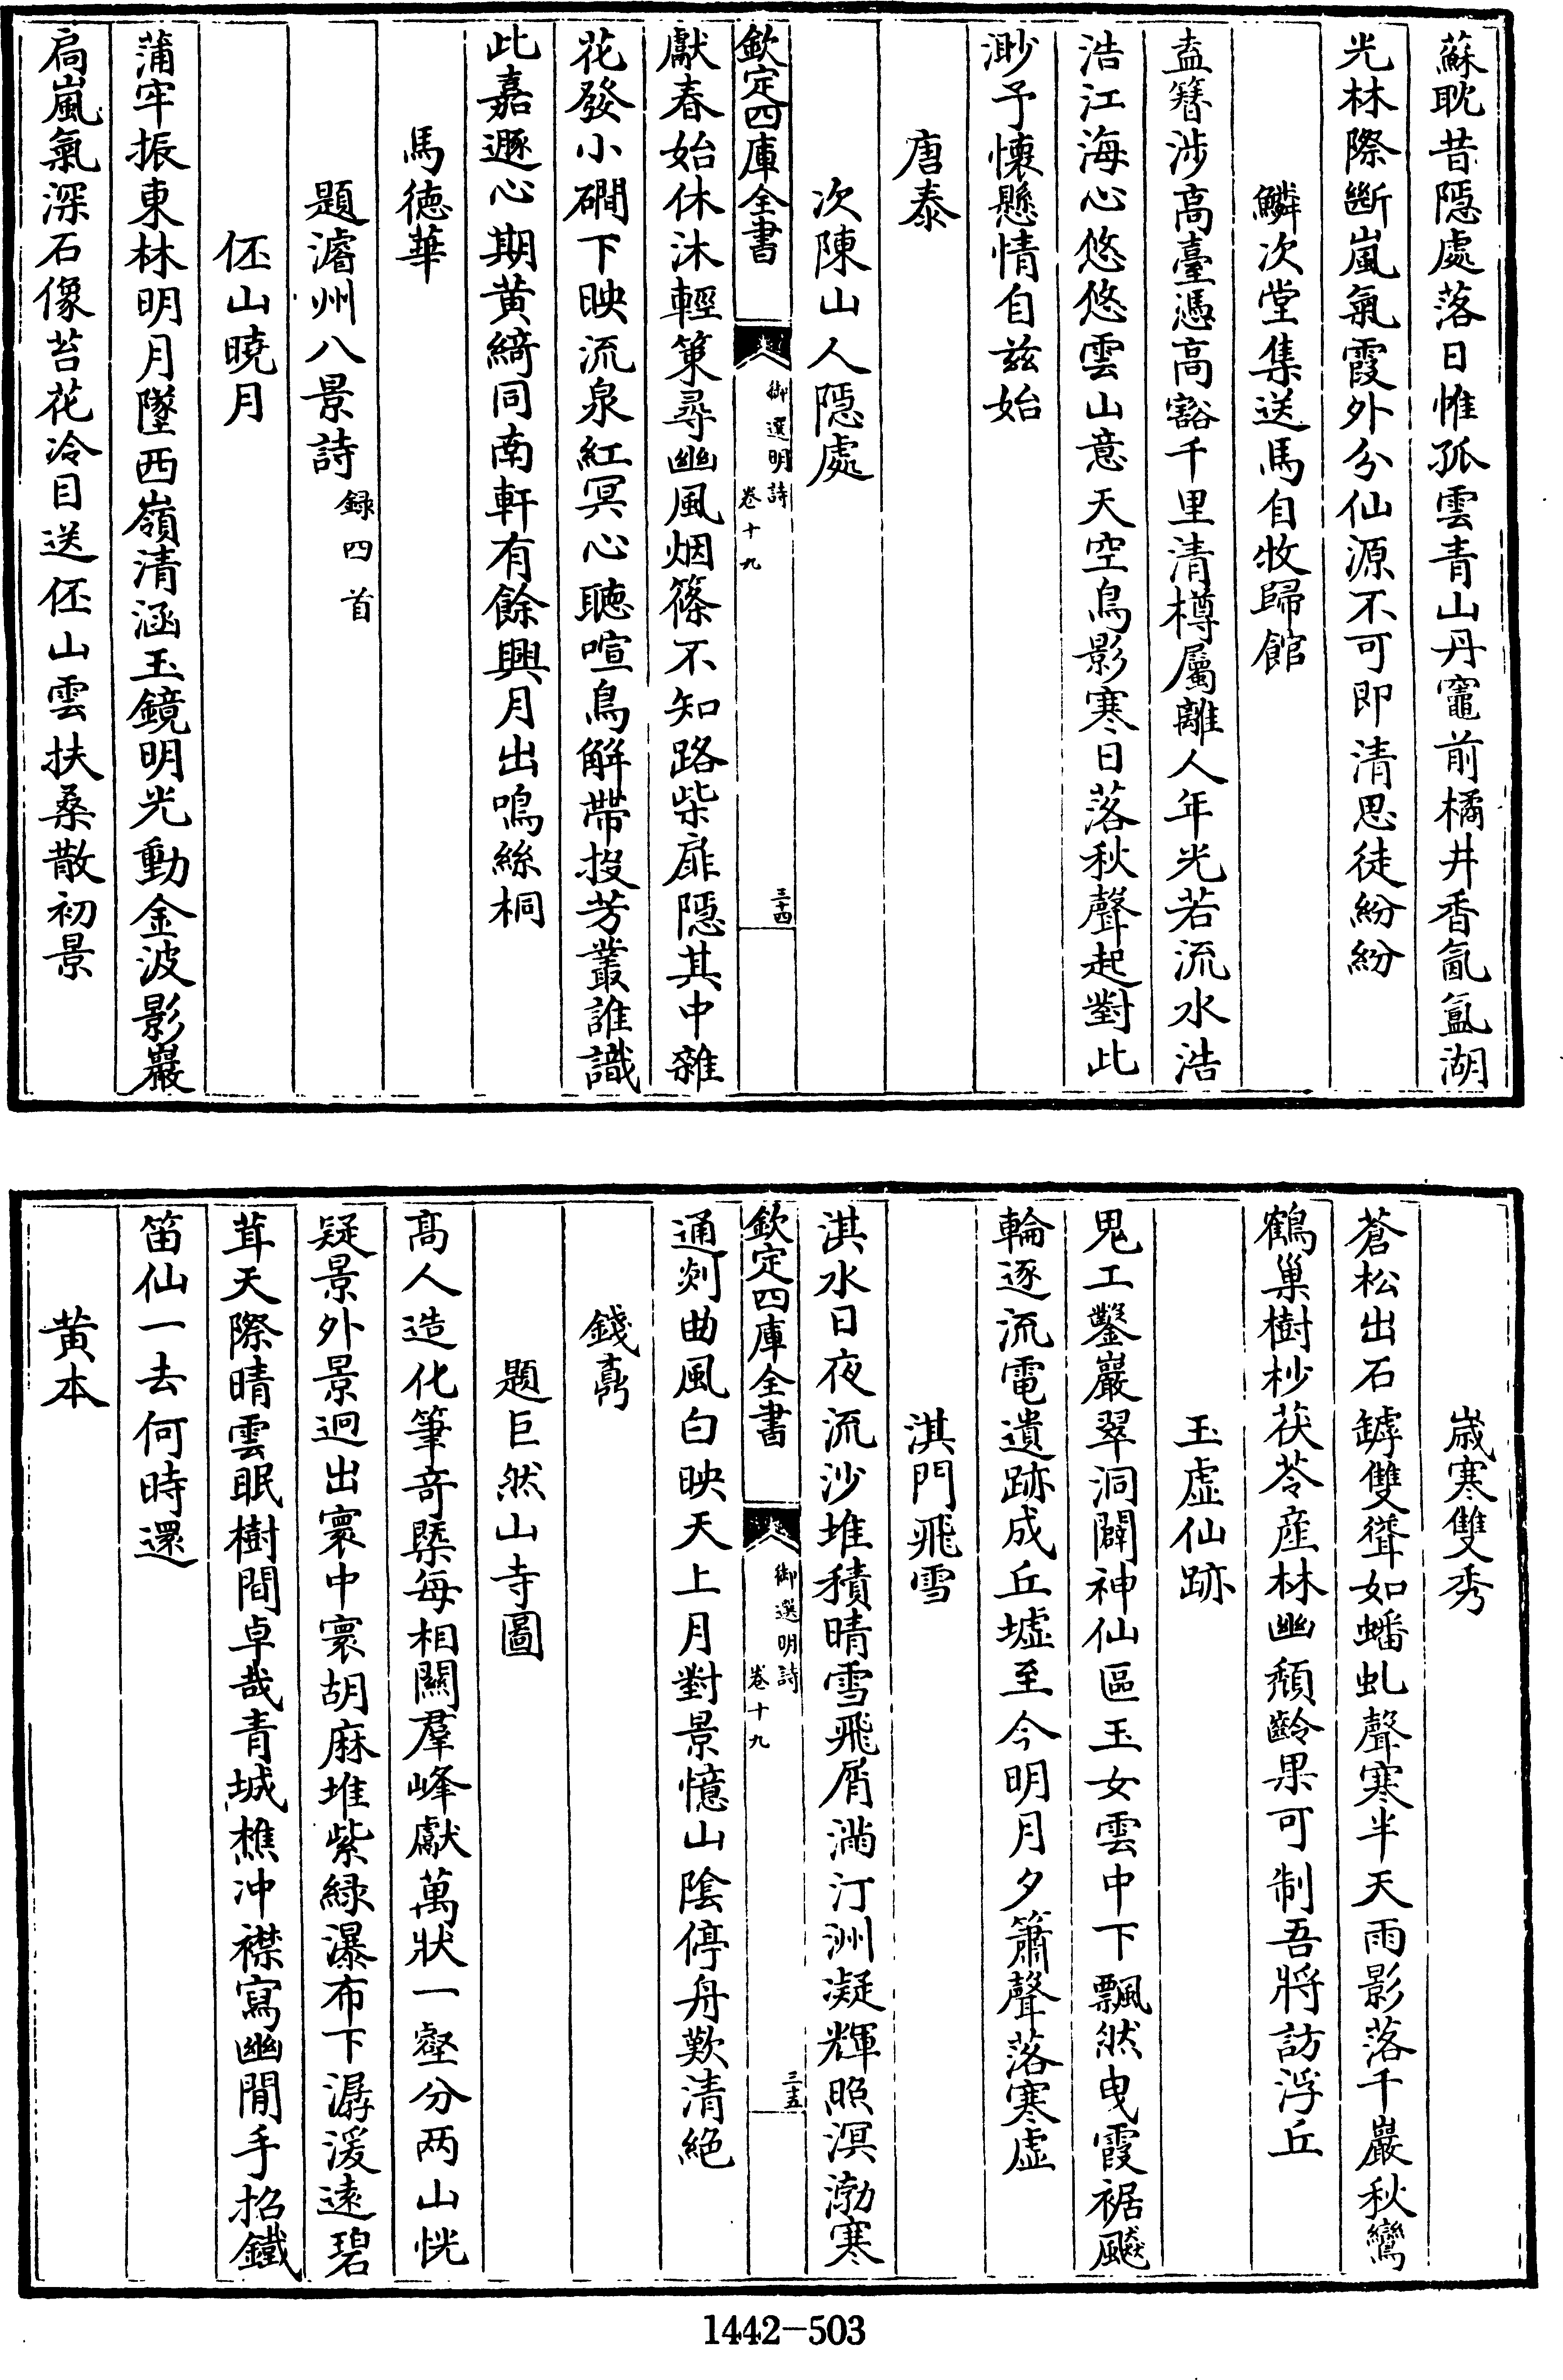 蘇耽昔隠處落日惟孤雲青山丹竈前橘井香氤氲湖
光林際斷嵐氣霞外分仙源不可即清思徒紛紛
鱗次堂集送馬自牧歸館
盍簪涉高臺憑高豁千里清樽屬離人年光若流水浩
浩江海心悠悠雲山意天空鳥影寒日落秋聲起對此
渺予懷懸情自兹始
唐泰
次陳山人隠處
欽定四庫全書
御選明詩
卷十九
三十四
獻春始休沐輕策尋幽風烟篠不知路柴扉隠其中雜
花發小磵下映流泉紅冥心聴喧鳥解帶投芳叢誰識
此嘉遯心期黄綺同南軒有餘興月出鳴絲桐
馬徳華
題濬州八景詩録四首
伾山曉月
蒲牢振東林明月墜西嶺清涵玉鏡明光動金波影巖
扃嵐氣深石像苔花冷目送伾山雲扶桑散初景
嵗寒雙秀
蒼松出石罅雙聳如蟠虬聲寒半天雨影落千巖秋鸞
鶴巢樹杪茯苓産林幽頽齡果可制吾將訪浮丘
玉虚仙跡
鬼工鑿巖翠洞闢神仙區玉女雲中下飄然曳霞裾飈
輪逐流電遺跡成丘墟至今明月夕簫聲落寒虚
淇門飛雪
淇水日夜流沙堆積晴雪飛屑滿汀洲凝輝照溟渤寒
欽定四庫全書
御選明詩
卷十九
三十五
通剡曲風白映天上月對景憶山陰停舟歎清絶
錢鼒
題巨然山寺圖
髙人造化筆竒槩每相關羣峰獻萬狀一壑分两山恍
疑景外景迥出寰中寰胡麻堆紫緑瀑布下潺湲逺碧
茸天際晴雲眠樹間卓哉青城樵冲襟寫幽閒手招鐵
笛仙一去何時還
黄本
1442-503